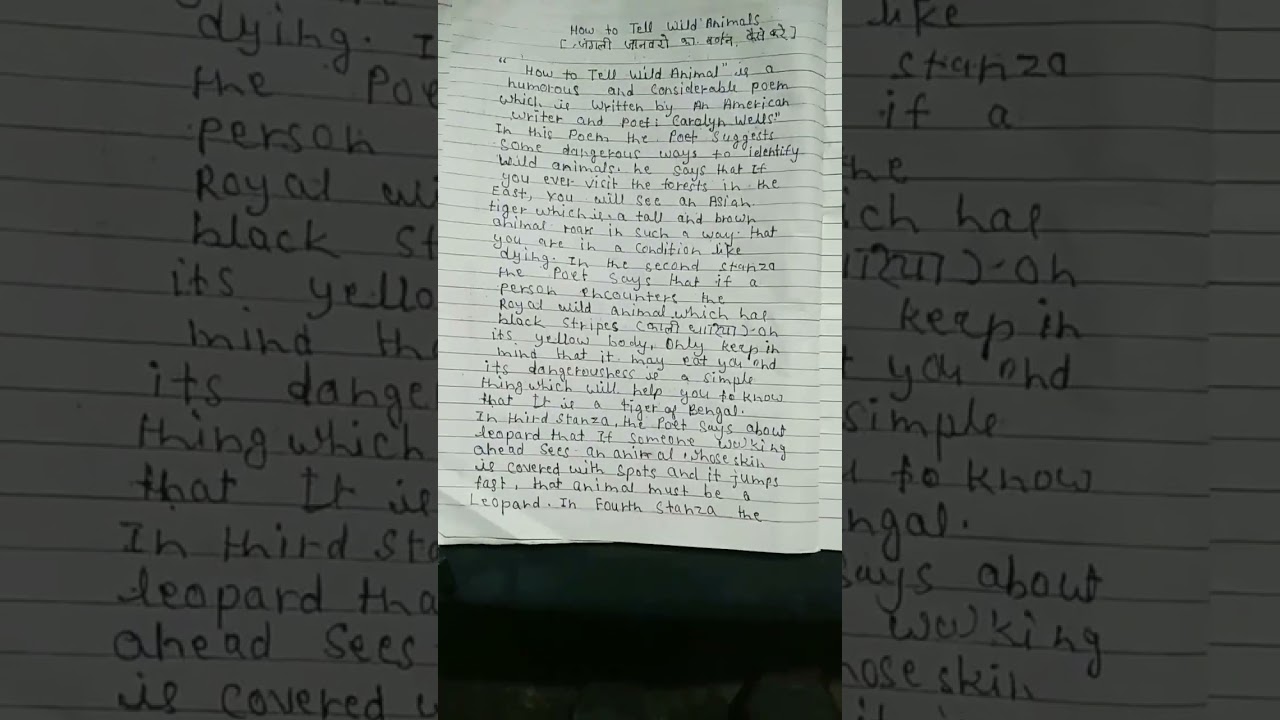 How to Tell Wild Animals
[जंगली जानवरो का वर्णन कैसे करे]
"How to Tell Wild Animal" is a
humorous and considerable poem
which is written by An American
writer and poet: Carolyn Wells"
In this poem the poet suggests
some dangerous ways to identify
wild animals. he says that If
you ever visit the forests in the
East, you will see an Asian
tiger which is a tall and brown
animal roars in such a way that
you are in a condition like
dying. In the second stanza
the poet says that if a
person encounters the
Royal wild animal which has
black stripes (काली धारियां) on
its yellow body, only keep in
mind that it may eat you and
its dangerousness is a simple
thing which will help you to know
that It is a tiger of Bengal.
In third stanza, the poet says about
leopard that If someone walking
ahead sees an animal whose skin
is covered with spots and it jumps
fast, that animal must be a
Leopard. In Fourth stanza the